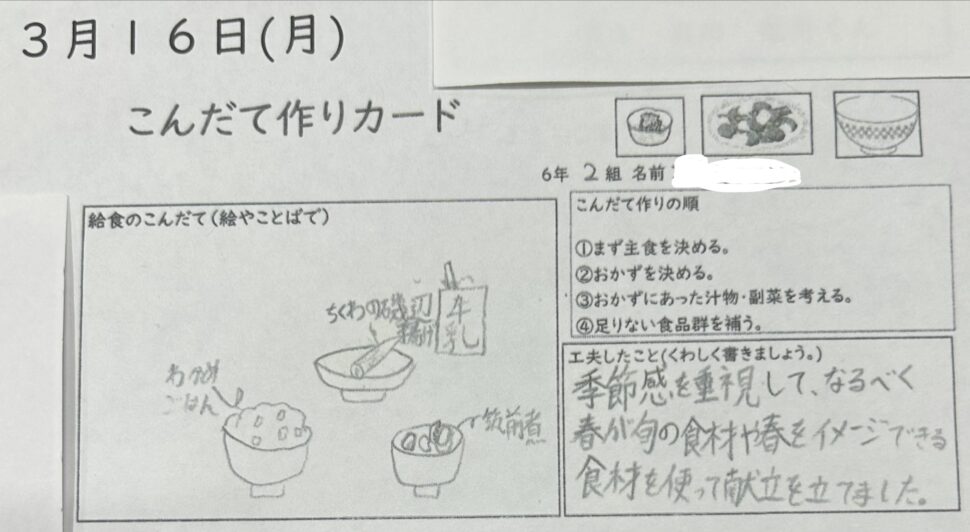 3月16日(月)
こんだて作りカード
6年 2組 名前
給食のこんだて(絵やことばで)
ちくわの磯辺
揚げ
牛
乳
わかめ
ごはん
筑前煮
こんだて作りの順
①まず主食を決める。
②おかずを決める。
③おかずにあった汁物・副菜を考える。
④足りない食品群を補う。
工夫したこと(くわしく書きましょう。)
季節感を重視して、なるべく
春が旬の食材や春をイメージできる
食材を使って献立を立てました。